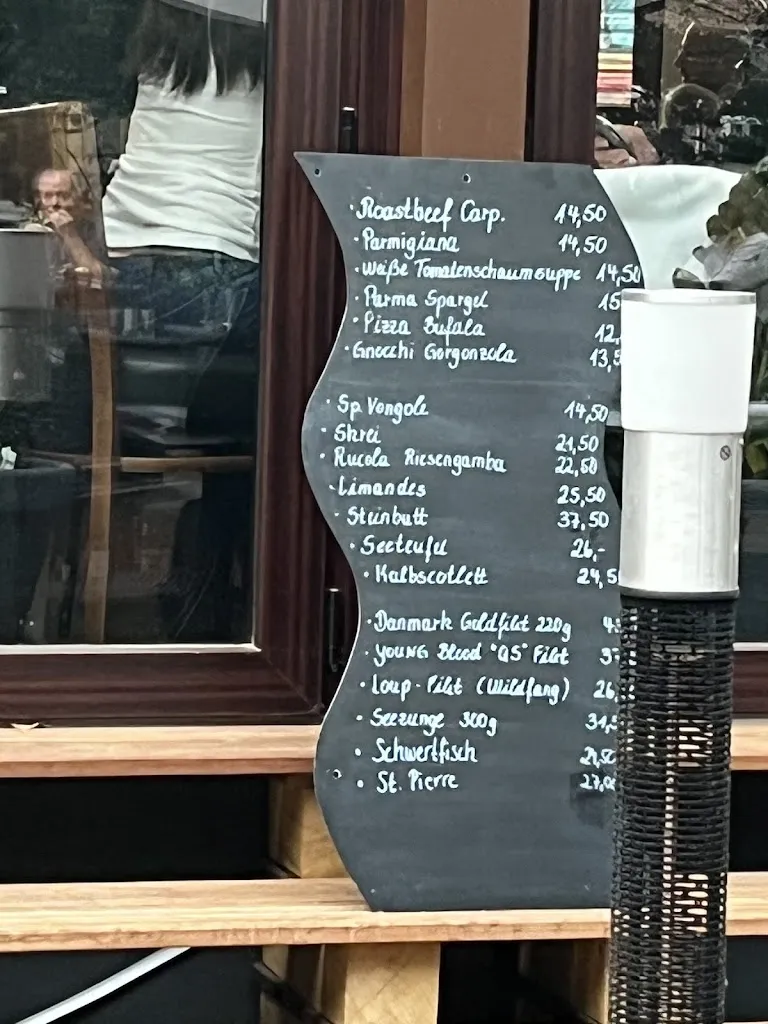 · Roastbeef Carp. 14,50
· Parmigiana 14,50
· Weiße Tomatenschaumsuppe 14,50
· Parma Spargel 15
· Pizza Bufala 12,
· Gnocchi Gorgonzola 13,5
· Sp. Vongole 14,50
· Skrei 21,50
· Rucola Riesengamba 22,50
· Limandes 25,50
· Steinbutt 37,50
· Seeteufel 26,-
· Kalbscotlett 24,5
· Danmark Goldfilet 220g 4
· YOUNG Blood "QS" Filet 3
· Loup-Filet (Wildfang) 26,
· Seezunge 300g 34,5
· Schwertfisch 21,50
· St. Pierre 27,0